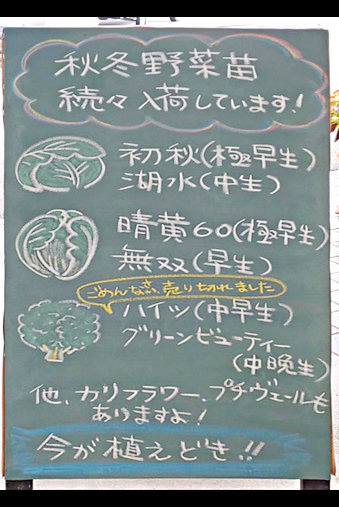 秋冬野菜苗
続々入荷しています!
初秋(極早生)
湖水(中生)
晴黄60(極早生)
無双(早生)
ごめんなさい売り切れました
ハイツ(中早生)
グリーンビューティー
(中晩生)
他、カリフラワー、プチヴェールも
ありますよ!
今が植えどき!!